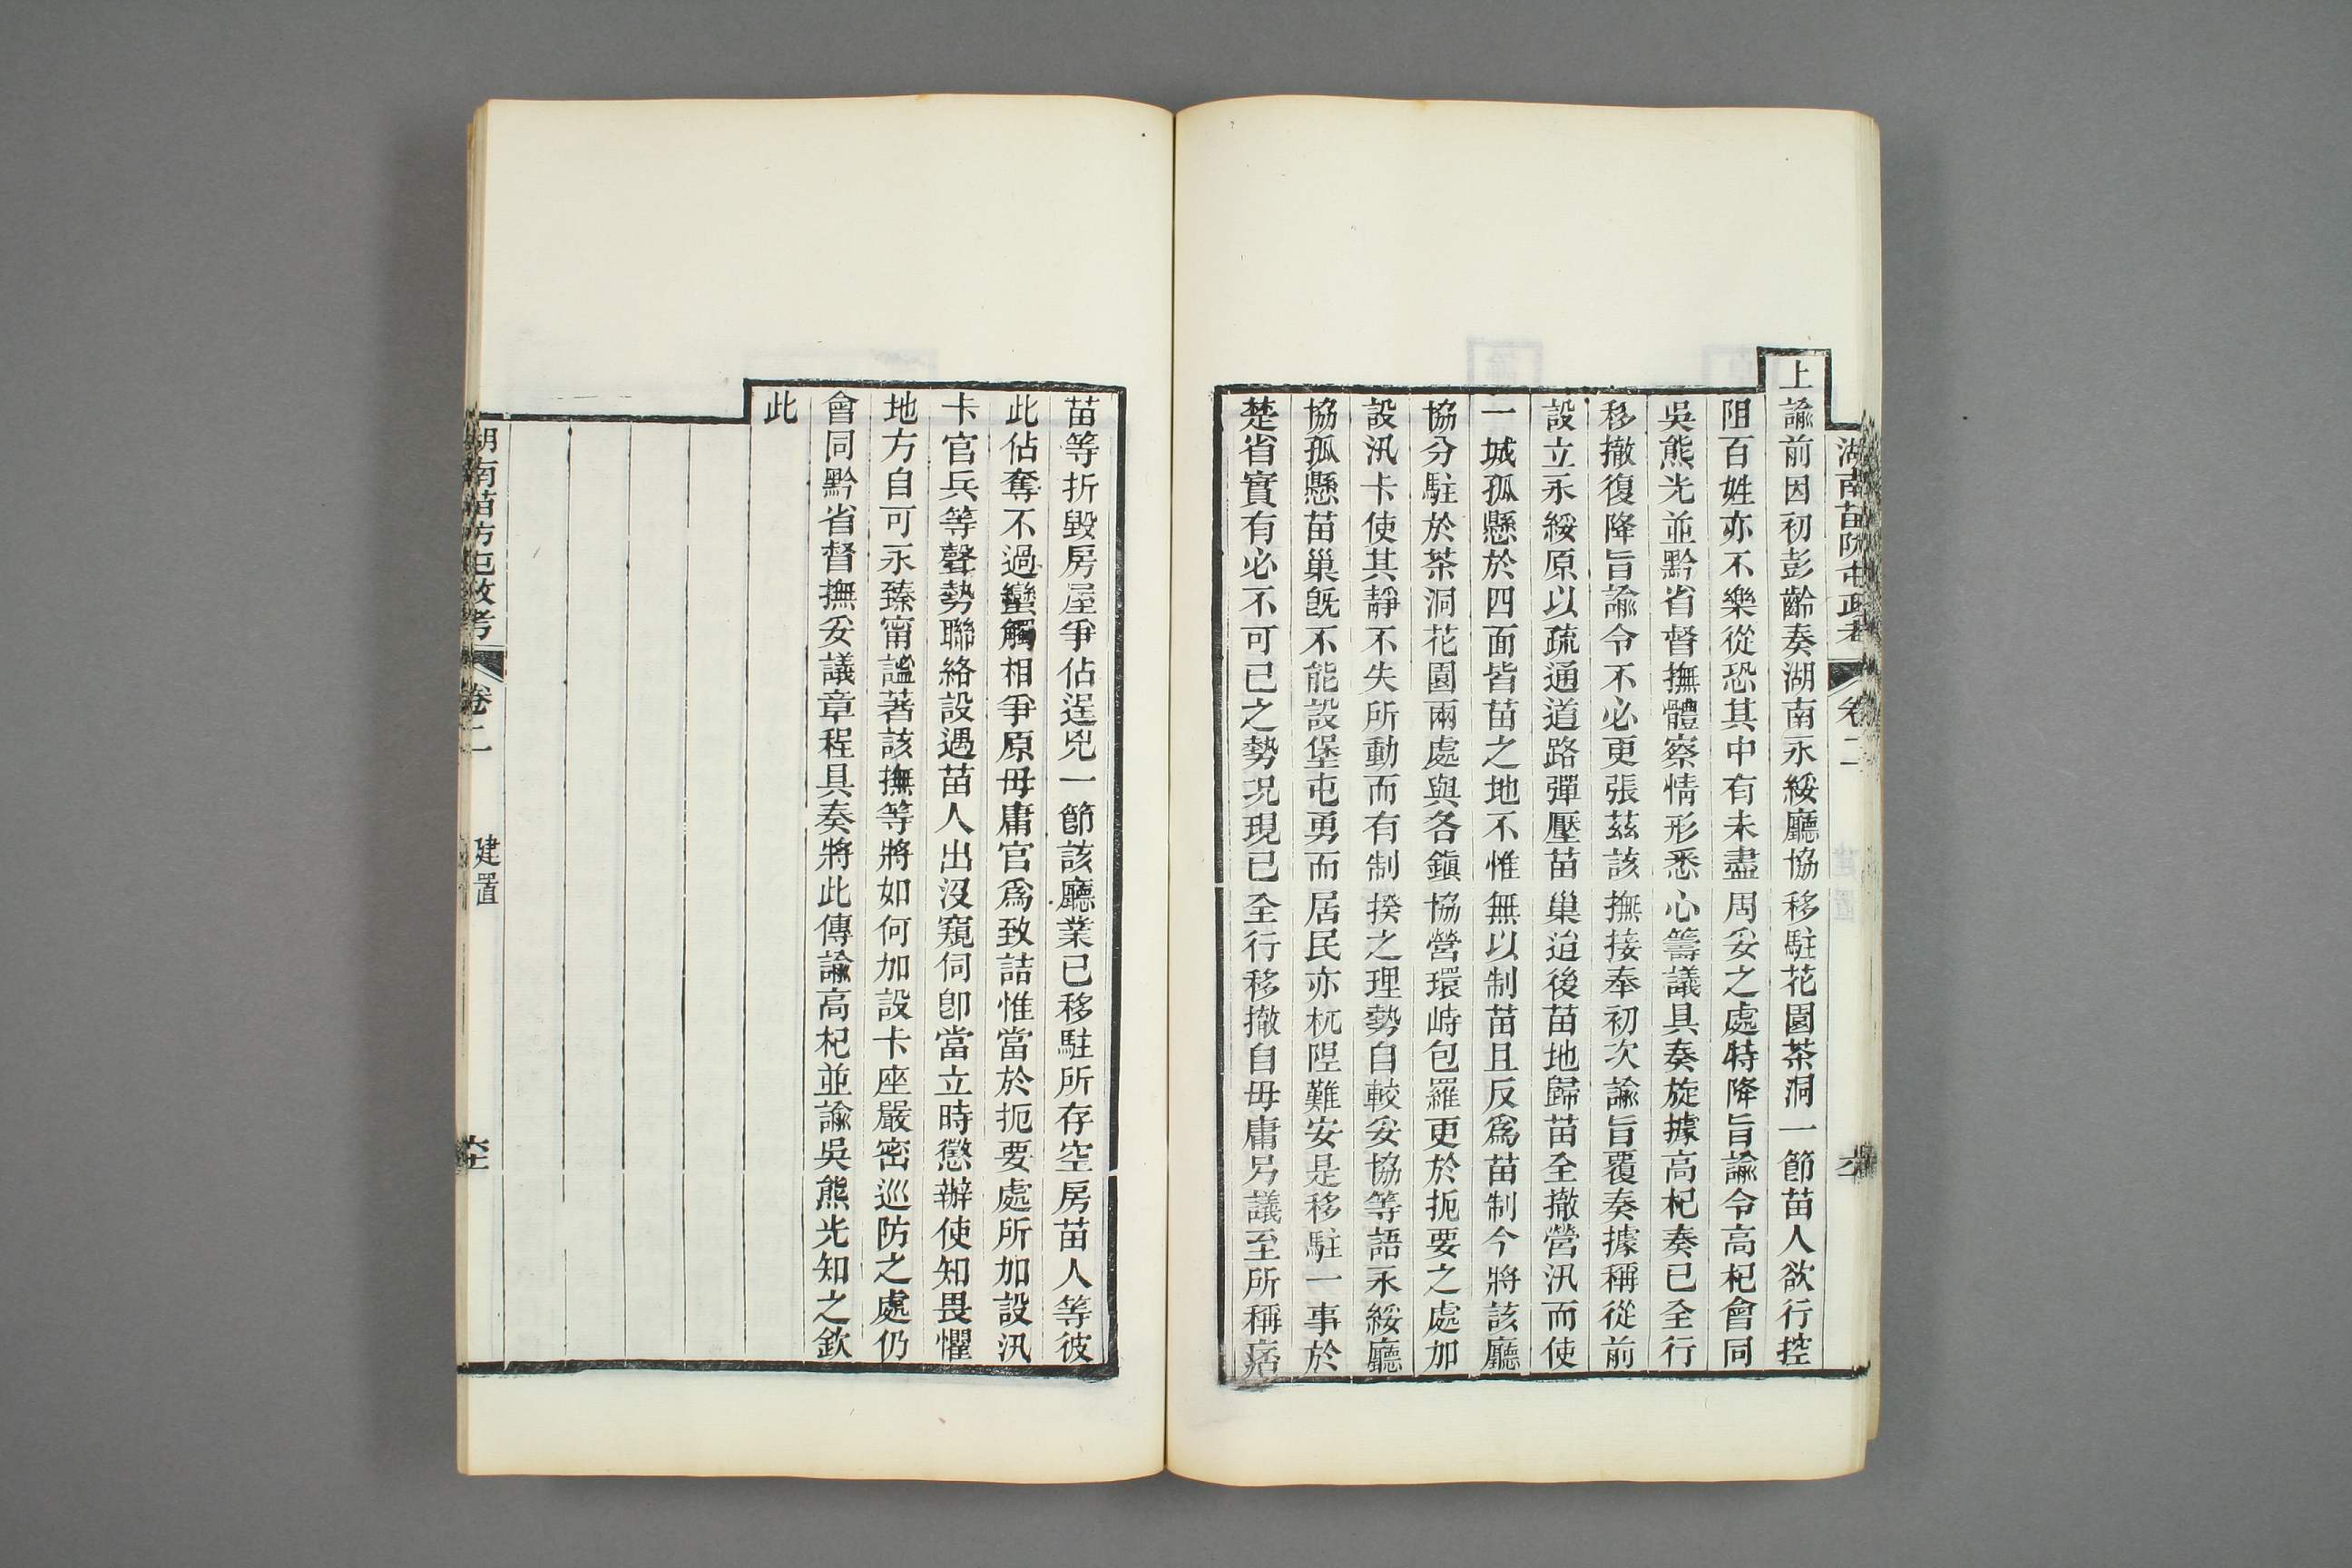 湖南苗防屯政考 卷二
上諭前因初彭齡奏湖南永綏廳協移駐花園茶洞一節苗人欲行控
阻百姓亦不樂從恐其中有未盡周妥之處特降旨諭令高杞會同
吳熊光並黔省督撫體察情形悉心籌議具奏旋據高杞奏已全行
移撤復降旨諭令不必更張茲該撫接奉初次諭旨覆奏據稱從前
設立永綏原以疏通道路彈壓苗巢迨後苗地歸苗全撤營汛而使
一城孤懸於四面皆苗之地不惟無以制苗且反爲苗制今將該廳
協分駐於茶洞花園兩處與各鎭協營環峙包羅更於扼要之處加
設汛卡使其靜不失所動而有制揆之理勢自較妥協等語永綏廳
協孤懸苗巢旣不能設堡屯勇而居民亦杌隉難安是移駐一事於
楚省實有必不可已之勢况現已全行移撤自毋庸另議至所稱痞
苗等折毀房屋爭佔逞兇一節該廳業已移駐所存空房苗人等彼
此佔奪不過蠻觸相爭原毋庸官爲致詰惟當於扼要處所加設汛
卡官兵等聲勢聯絡設遇苗人出沒窺伺卽當立時懲辦使知畏懼
地方自可永臻甯謐著該撫等將如何加設卡座嚴密巡防之處仍
會同黔省督撫妥議章程具奏將此傳諭高杞並諭吳熊光知之欽
此
湖南苗防屯政考 卷二 建置